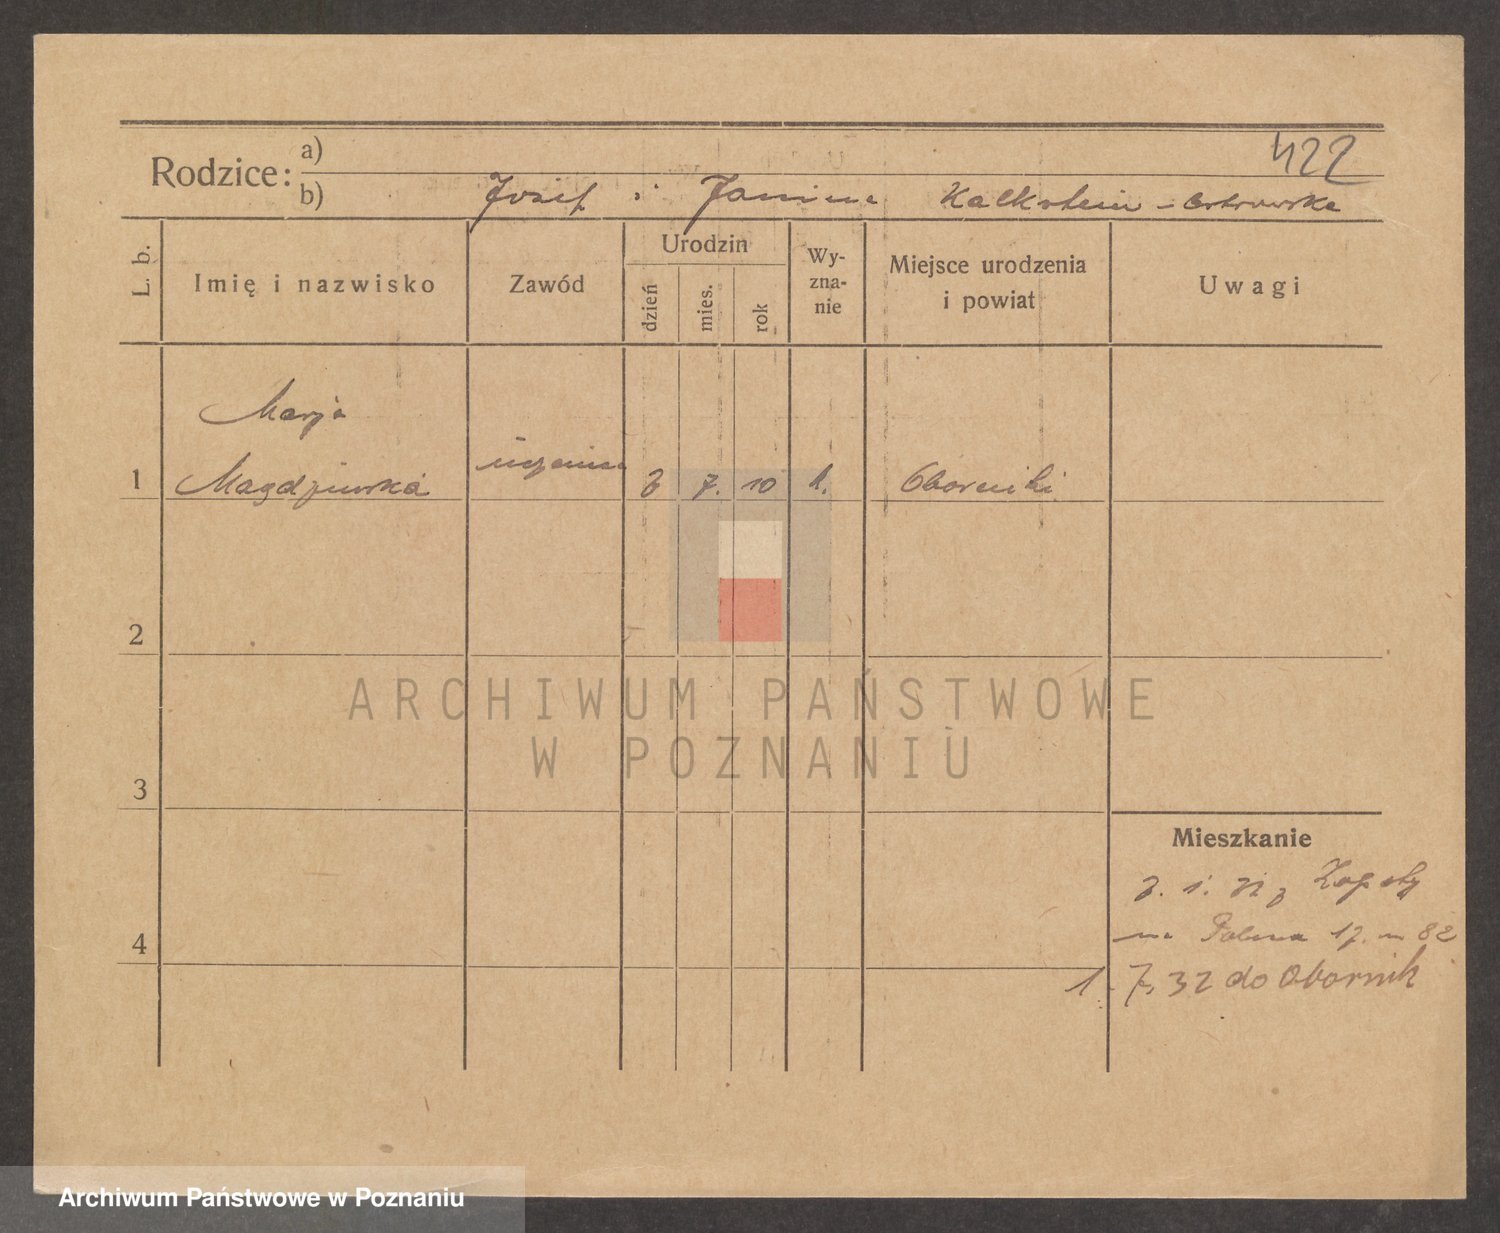 422
Rodzice:
a)
b) Józef i Janina Kalkstein - Ostrowska
L. b.
Imię i nazwisko
Zawód
Urodzin
dzień
mies.
rok
Wy-
zna-
nie
Miejsce urodzenia
i powiat
Uwagi
Marja
1 Magdziewska 7. 10 Oborniki
2
3
4
Mieszkanie
na 17. m 82
1. 7. 32 do Obornik
ARCHIWUM PAŃSTWOWE
W POZNANIU
Archiwum Państwowe w Poznaniu